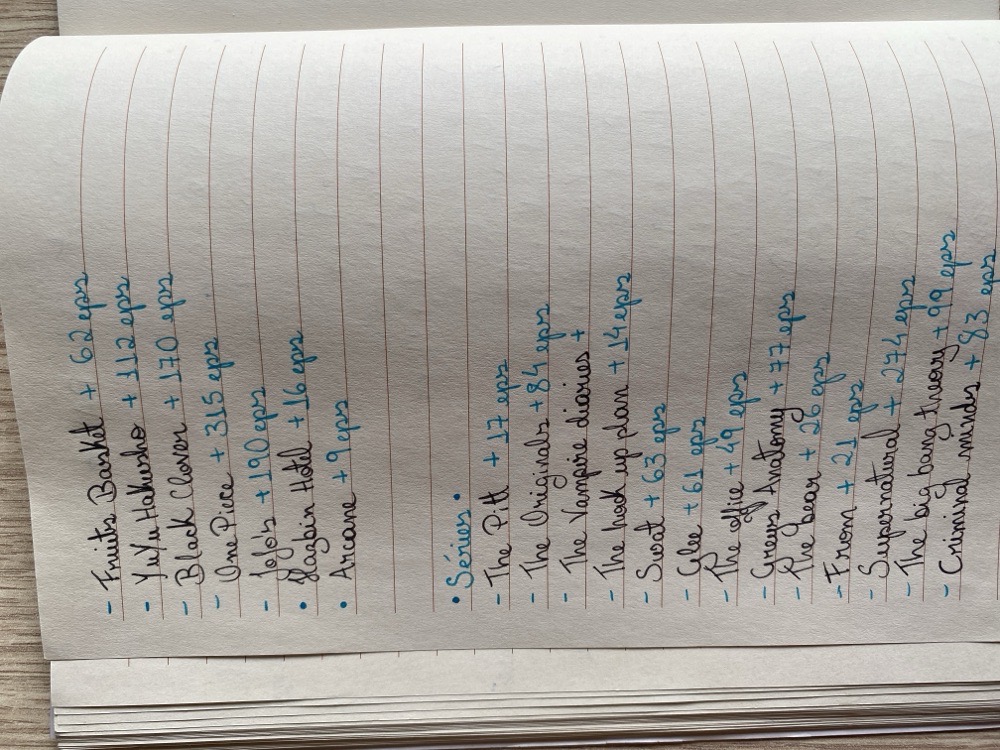 - Fruits Basket + 62 eps
- YuYu Hakusho + 112 eps
- Black Clover + 170 eps
- One Piece + 315 eps
- Jojo's + 190 eps
• Hazbin Hotel + 16 eps
• Arcane + 9 eps
• Séries •
- The Pitt + 17 eps
- The Originals + 84 eps
- The Vampire diaries +
- The hook up plan + 14 eps
- Swat + 63 eps
- Glee + 61 eps
- The office + 49 eps
- Greys Anatomy + 77 eps
- The bear + 26 eps
- From + 21 eps
- Supernatural + 274 eps
- The big bang theory + 99 eps
- Criminal minds + 83 eps